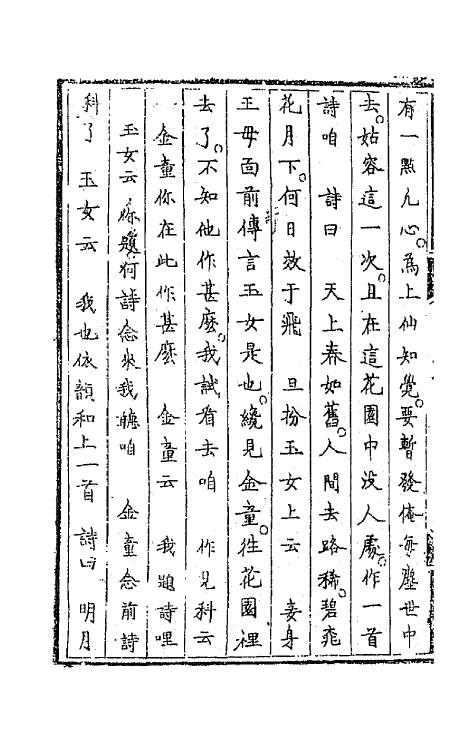 有一點凡心。為上仙知覺。要暫發俺每塵世中
去。姑容這一次。且在這花園中没人處。作一首
詩咱　詩曰　天上春如舊。人間去路稀。碧桃
花月下。何日效于飛　旦扮玉女上云　妾身
王母面前傳言玉女是也。纔見金童。往花園裡
去了。不知他作甚麽。我試看去咱　作見科云
金童你在此作甚麽　金童云　我題詩哩
玉女云　你題何詩念來我聽咱　金童念前詩
科了　玉女云　我也依韻和上一首　詩曰　明月